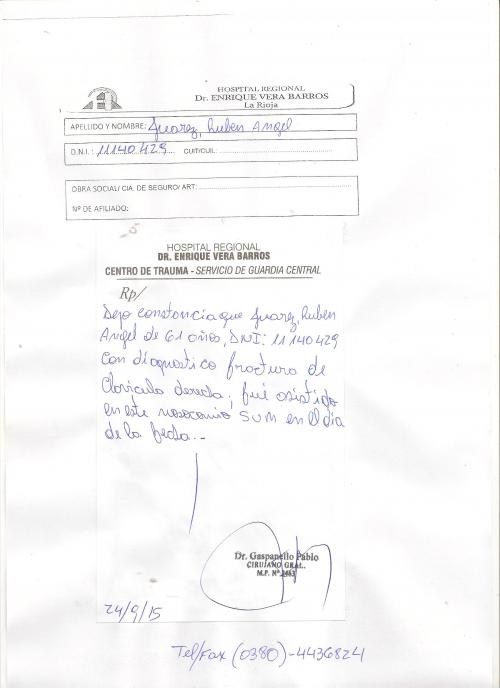 HOSPITAL REGIONAL
Dr. ENRIQUE VERA BARROS
La Rioja
APELLIDO Y NOMBRE: Juarez, Ruben Angel
D.N.I.: 11140429 CUIT/CUIL:
OBRA SOCIAL/ CIA. DE SEGURO/ ART:
Nº DE AFILIADO:
HOSPITAL REGIONAL
DR. ENRIQUE VERA BARROS
CENTRO DE TRAUMA - SERVICIO DE GUARDIA CENTRAL
Rp/
Dejo constancia que Juarez, Ruben
Angel de 61 años, DNI: 11140429
con diagnostico fractura de
Clavicula derecha; fué asistido
en este nosocomio SUM en el dia
de la fecha.-
Dr. Gaspanello Pablo
CIRUJANO GRAL.
M.P. Nº
24/9/15
Tel/Fax (0380)-4436824